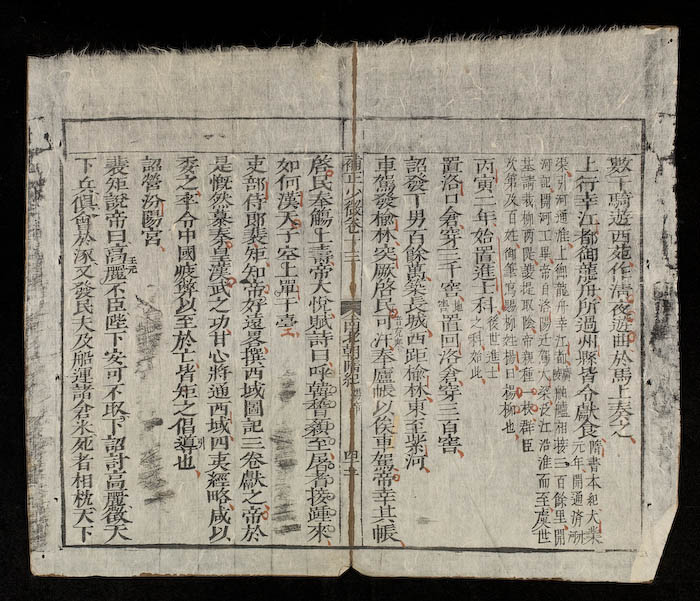 數千騎遊西苑作清夜遊曲於馬上奏之
上行幸江都御龍舟所過州縣皆令獻食
隋書本紀大業
元年開通濟
渠引河通淮上御龍舟幸江都舳艫相接二百餘里開
河記開河工畢帝自洛陽遷駕大梁泛江沿淮而至虞世
基請栽柳兩隄帝親種一枝群臣
次第及百姓御筆寫賜柳姓楊曰楊柳也
丙寅二年始置進士科
後世進士
之科始此
置洛口倉穿三千窖置回洛倉穿三百窖
詔發丁男百餘萬築長城西距榆林東至紫河
車駕發榆林突厥啓民可汗奉廬帳以俟車駕帝幸其帳
補正少微卷十三
南北朝隋紀
啓民奉觴上壽帝大悅賦詩曰呼韓稽顙至屠耆接踵來
如何漢天子空上單于臺
吏部侍郎裴矩知帝好遠畧撰西域圖記三卷獻之帝於
是慨然慕秦皇漢武之功甘心將通西域四夷經略咸以
委之卒令中國疲弊以至於亡皆矩之倡導也
詔營汾陽宮
裴矩說帝曰高麗不臣陛下安可不取下詔討高麗徵天
下兵俱會於涿又發民夫及船運諸倉米死者相枕天下